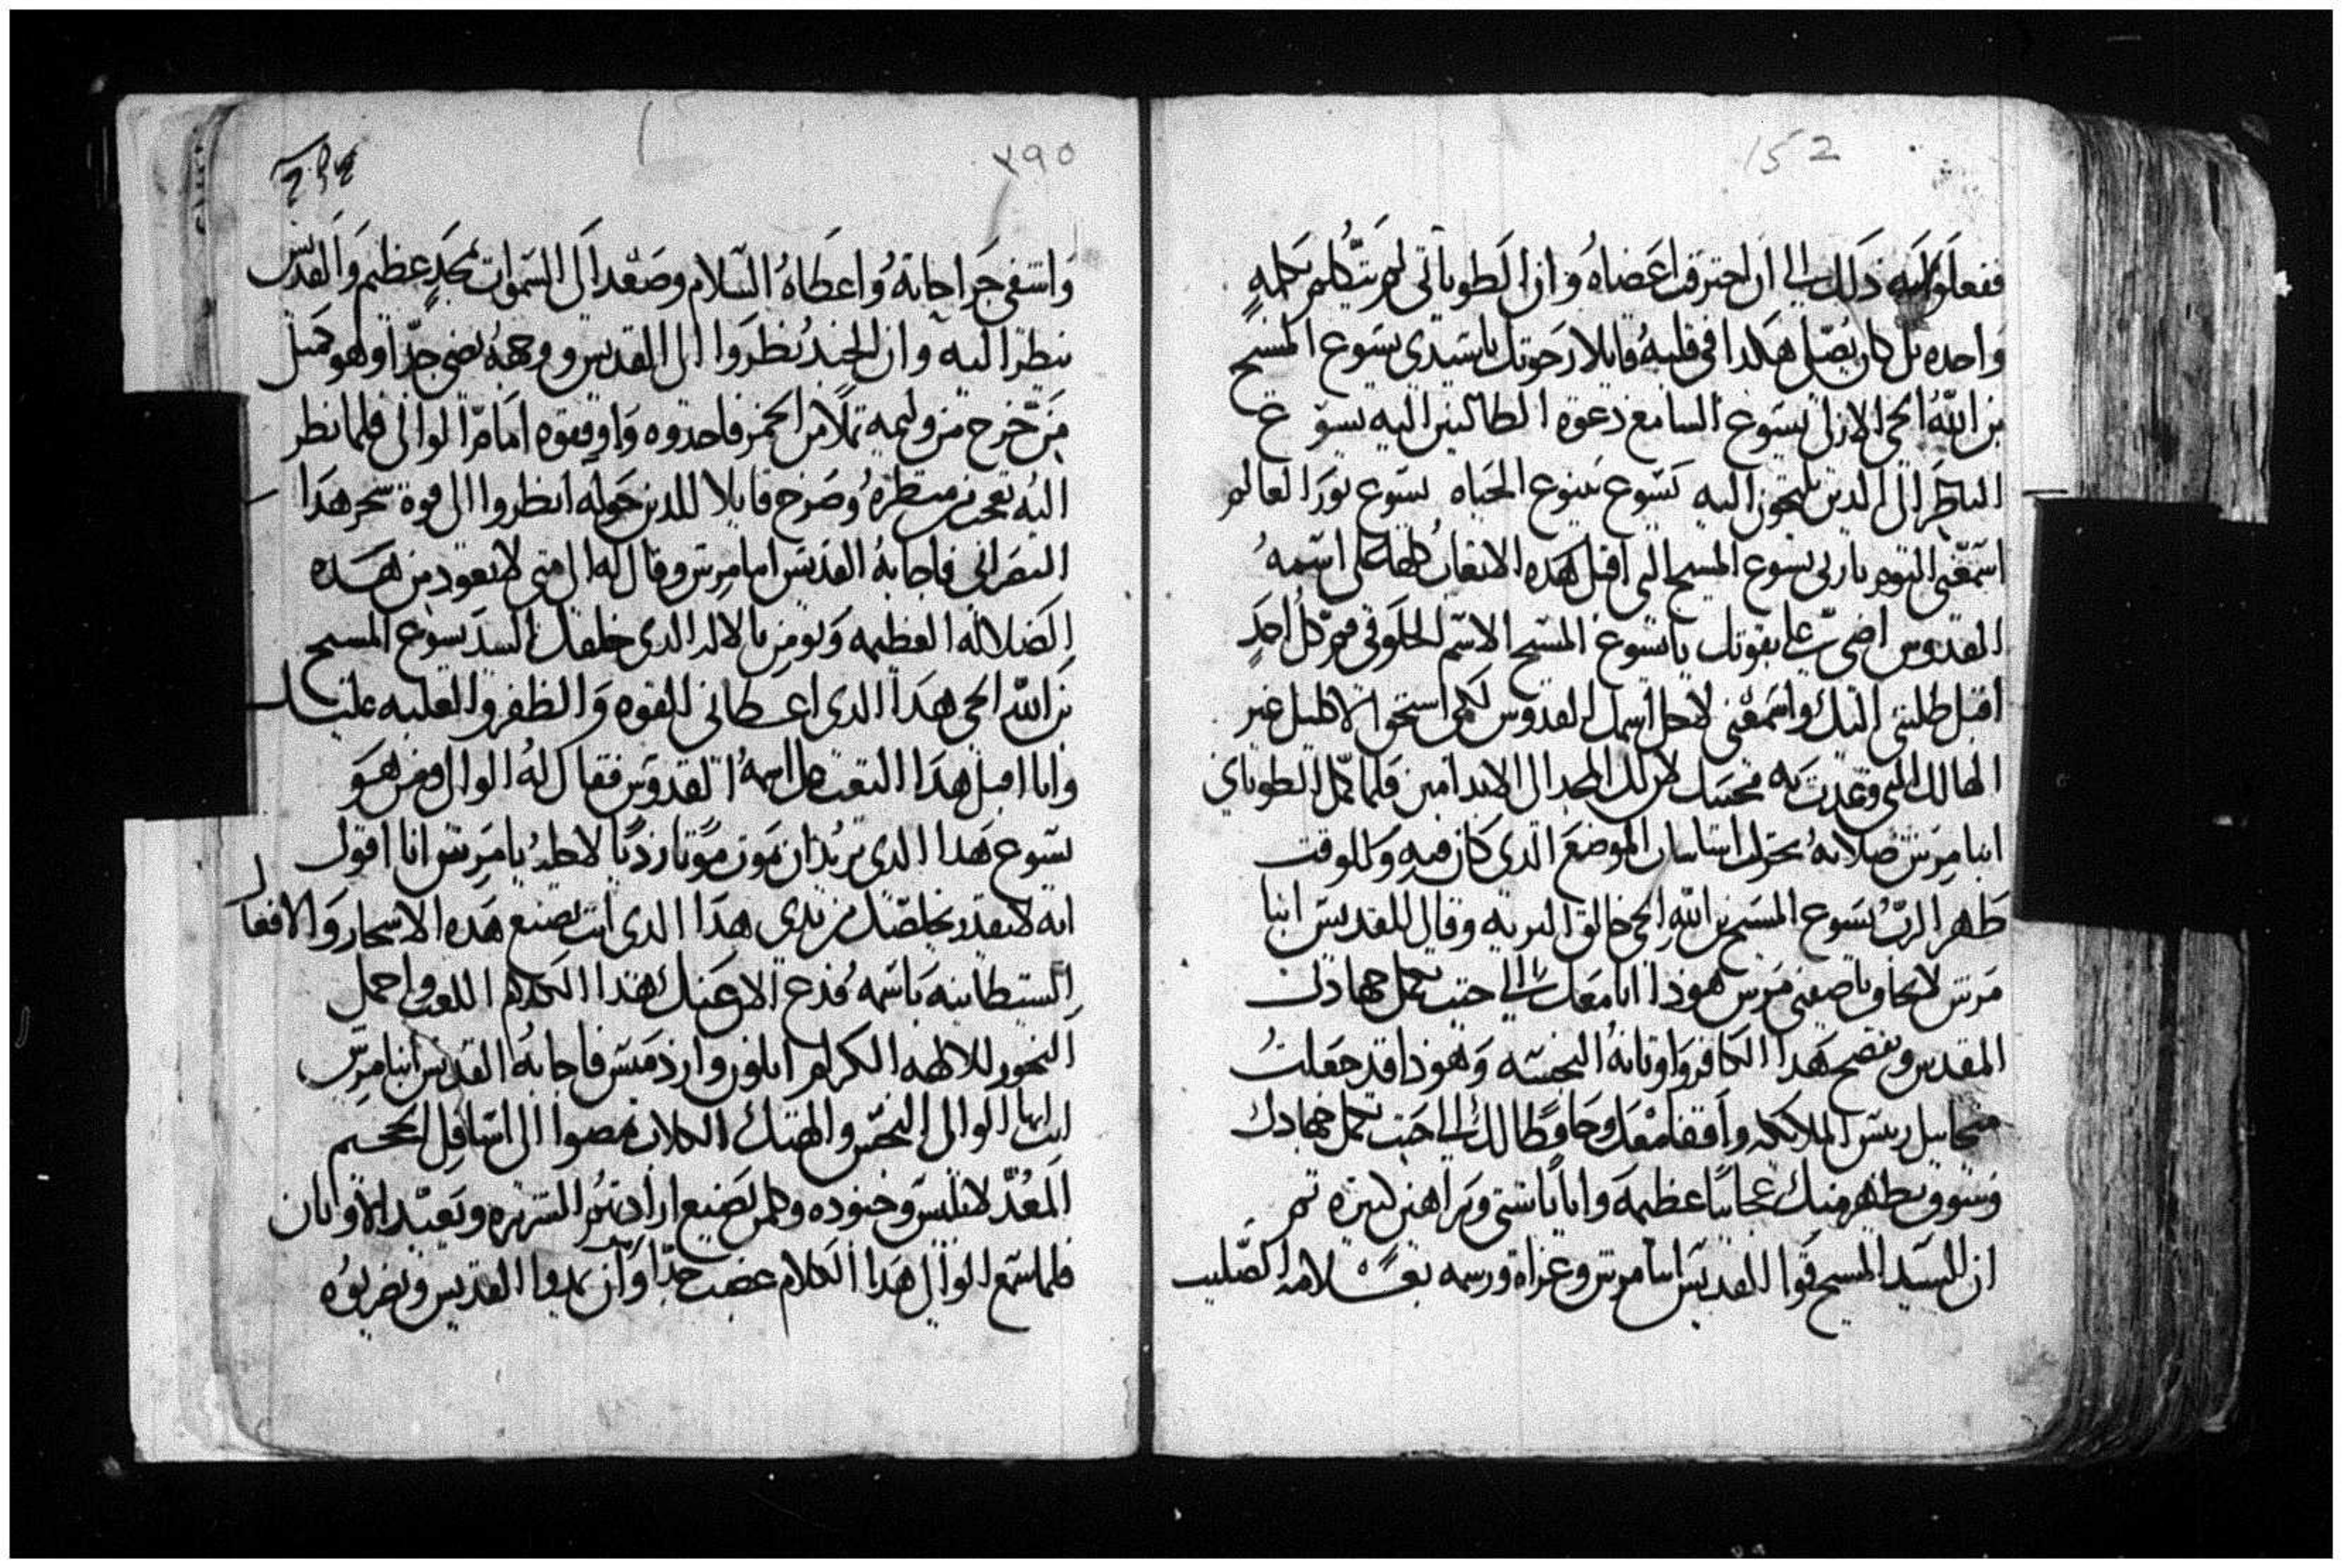 152
ففعلوا به ذلك الى ان احترقت اعضاه وان الطوباني لم يتكلم بكلمه
واحده بل كان يصلي هكدا في قلبه قايلا ارحوتك ياسيدي يسوع المسيح
بن الله الحي الازلي يسوع السامع دعوة الطالبين اليه يسوع
الناظر الى الدين يلتجون اليه يسوع ينبوع الحياه يسوع نور العالم
اسمعني اليوم يا ربي يسوع المسيح اقبل هده الاتعاب كلها على اسمه
القدوس اضي علي بقوتك يا يسوع المسيح الاسم الحلو في فم كل احد
اقبل طلبتي اليك واسمعني لاجل اسمك القدوس لكي استحق الاكليل غير
الهالك الدي وعدت به محبيك لان لك المجد الى الابد امين فلما كمل الطوباني
ابنا مرتس صلاته تحرك اساسات الموضع الدي كان فيه وللوقت
ظهر الرب يسوع المسيح بن الله الحي خالق البريه وقال للقديس ابنا
مرتس لا تخاف يا صفيي مرتس هودا انا معك الى حتى تكمل جهادك
المقدس وتفضح هدا الكافر واوتانه النجسه وهودا قد جعلت
ميخاييل رييس الملايكه واقفا معك وحافظا لك الى حتى تكمل جهادك
وسوف يظهر منك عجايبا عظيمه واياتا شتى وبراهين كتيره تم
ان السيد المسيح قوا القديس ابنا مرتس وعزاه ورسمه بعلامة الصليب
٢٩٥
واشفى جراحاته واعطاه السلام وصعد الى السموات بمجد عظيم والقديس
ينظر اليه وان الجند نظروا الى القديس ووجهه يضي جدا وهو مثل
من خرج من وليمه تملا من الخمر فاخدوه واوقفوه امام الوالي فلما نظر
اليه تعجب من منظره وصرخ قايلا للدين حوله انظروا الى قوة سحر هدا
النصراني فاجابه القديس ابنا مرتس وقال له الى متى لا تعود من هده
الضلاله العظيمه وتومن بالاله الدي خلقك السيد يسوع المسيح
بن الله الحي هدا الدي اعطاني القوه والظفر والغلبه عليك
وانا اقبل هدا التعب على اسمه القدوس فقال له الوالي ومن هو
يسوع هدا الدي تريد ان تموت موتا رديا لاجله يا مرتس انا اقول
انه لا يقدر يخلصك من يدي هدا الدي انت تصنع هده الاسحار والافعال
الشيطانيه باسمه فدع الان عنك هدا الكلام اللعب واحمل
البخور للالهه الكرام ابلون وارذميس فاجابه القديس ابنا مرتس
ايها الوالي النجس والهتك الكلاب تمضوا الى اسافل الجحيم
المعد لابليس وجنوده وكلمن يصنع ارادتكم الشريره ويعبد الاوتان
فلما سمع الوالي هدا الكلام غضب جدا وامر ان يمدوا القديس ويضربوه